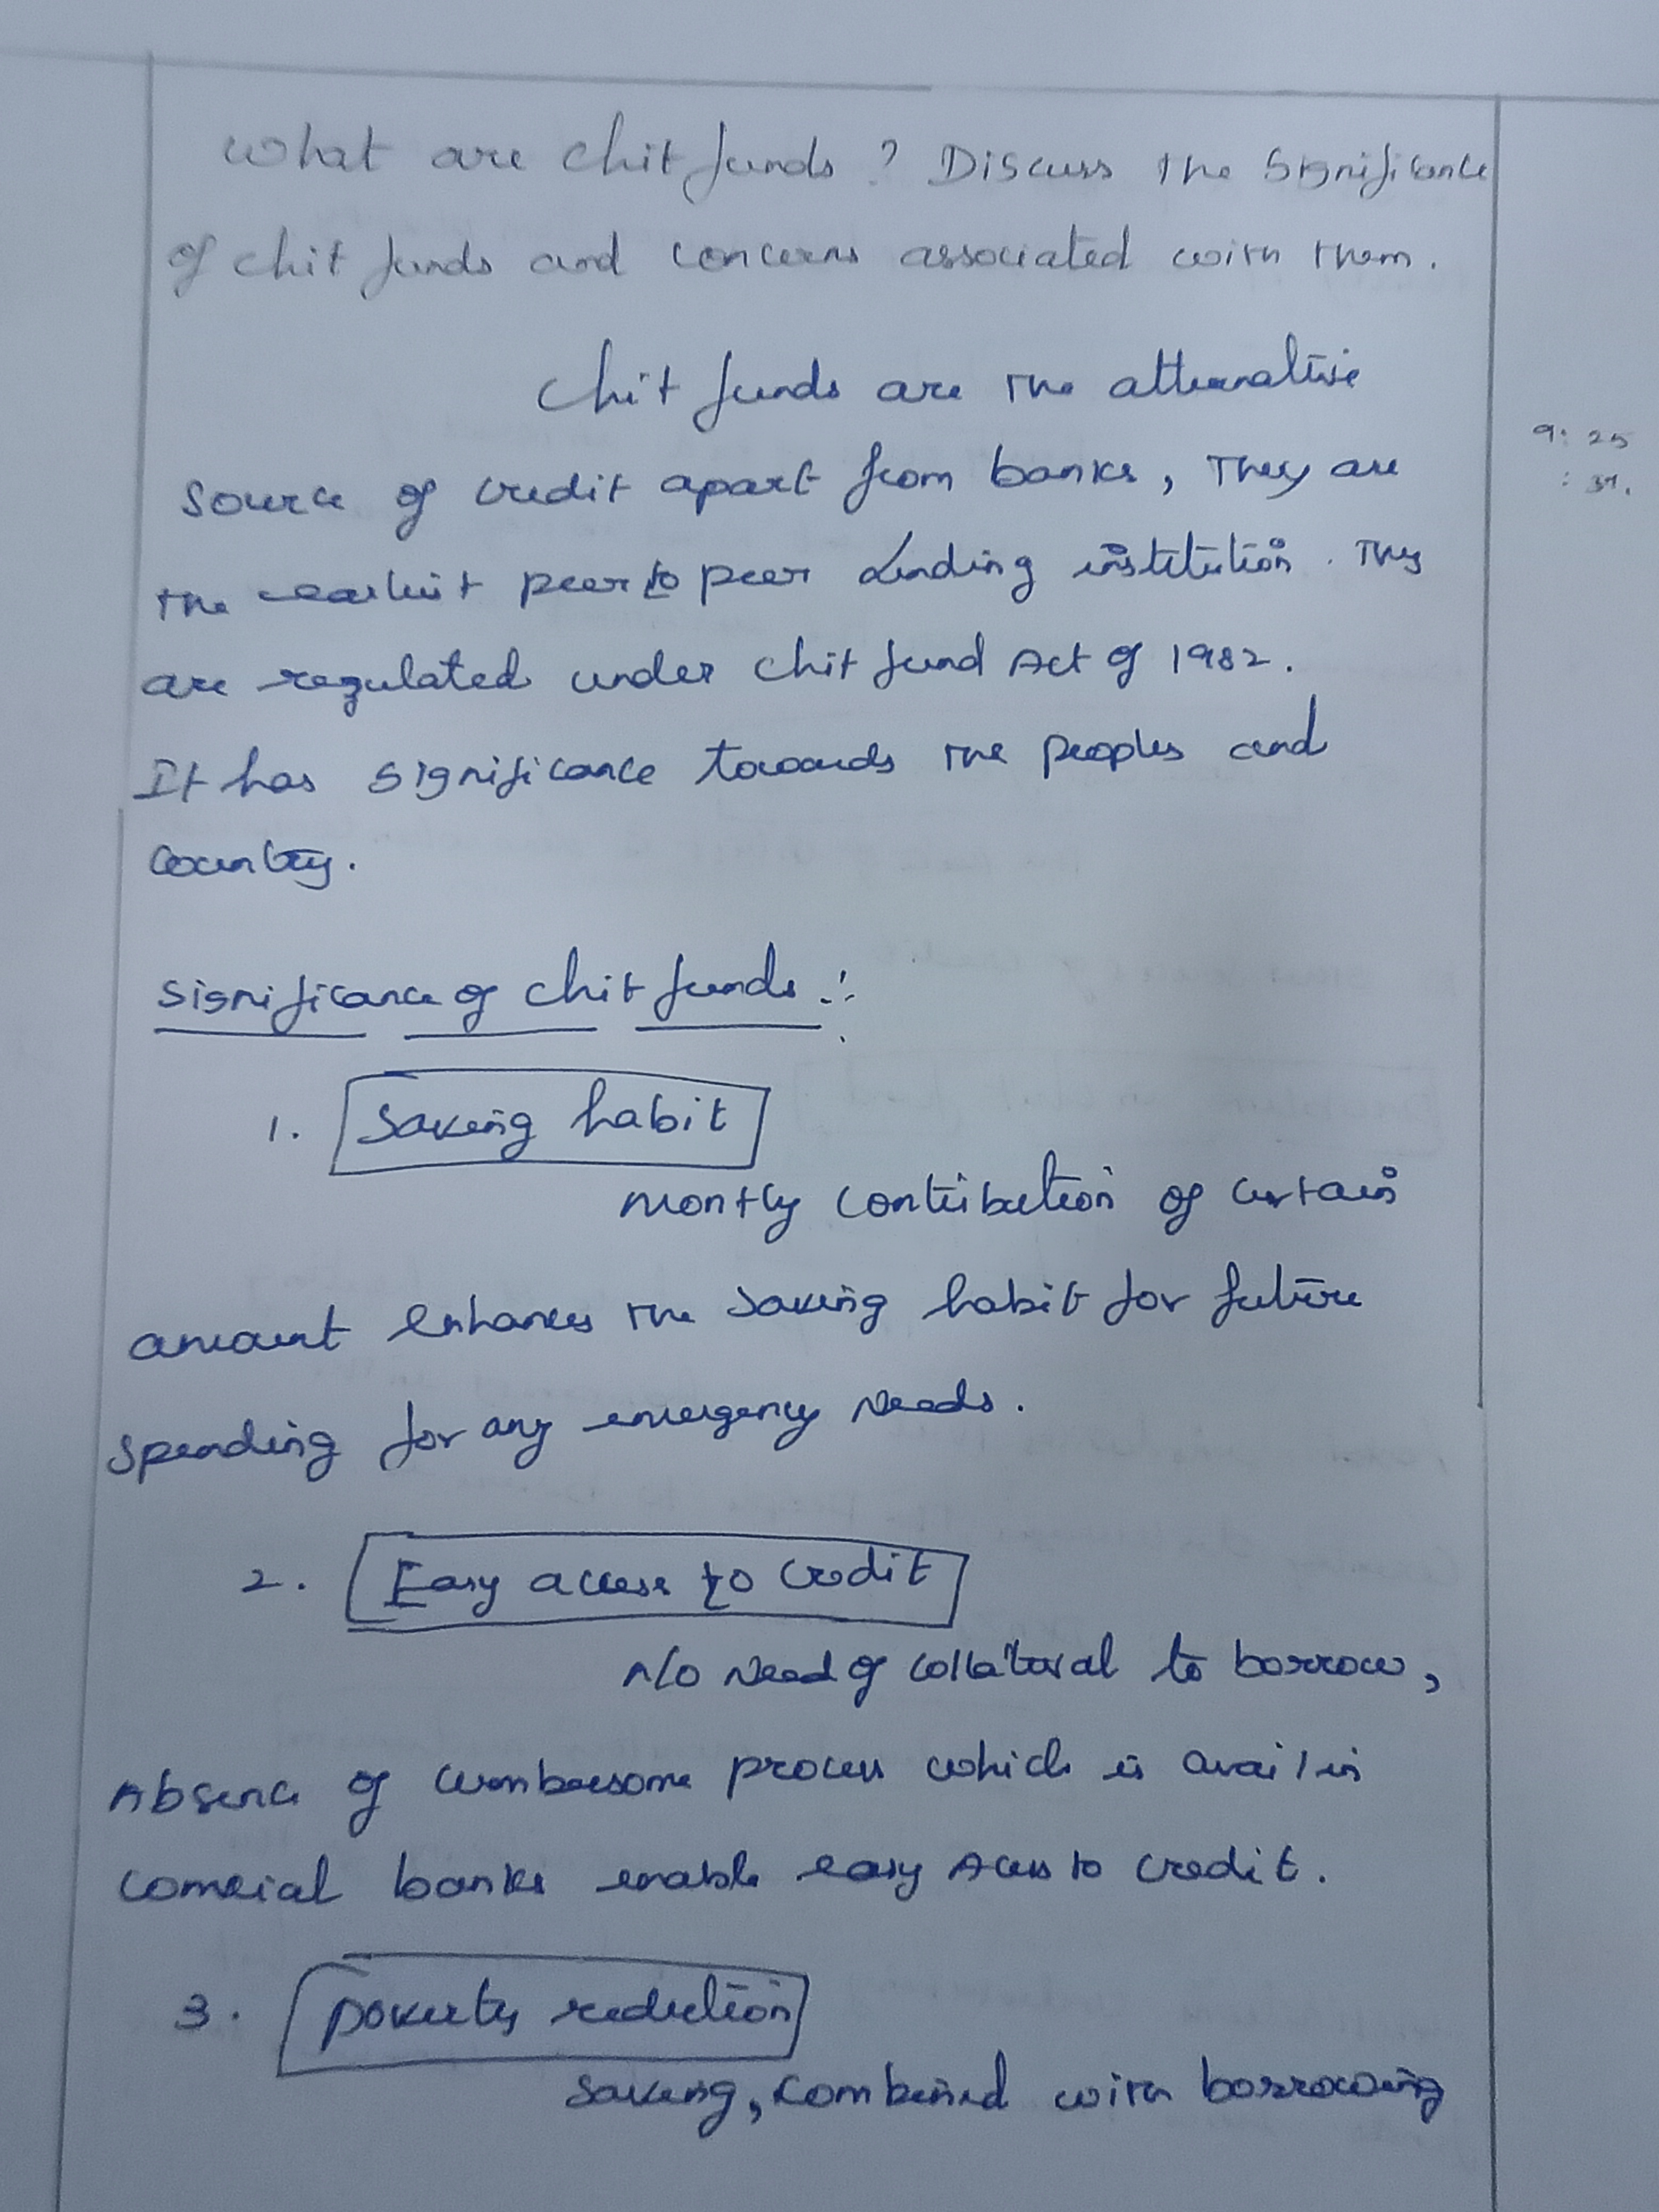 What are chit funds ? Discuss the Significance
of chit funds and concerns associated with them.
Chit funds are the alternative
Source of credit apart from banks, They are
the earliest peer to peer lending institution. They
are regulated under chit fund Act of 1982.
It has significance towards the peoples and
Country.
9: 25
: 31.
Significance of chit funds :
1. Saving habit
Montly contribution of certain
amount enhances the saving habit for future
spending for any emergency Needs.
2. Easy access to credit
No Need of collateral to borrow,
Absence of cumbersome process which is avail in
comercial banks enable easy Acess to credit.
3. Poverty reduction
Saving, combined with borrowing